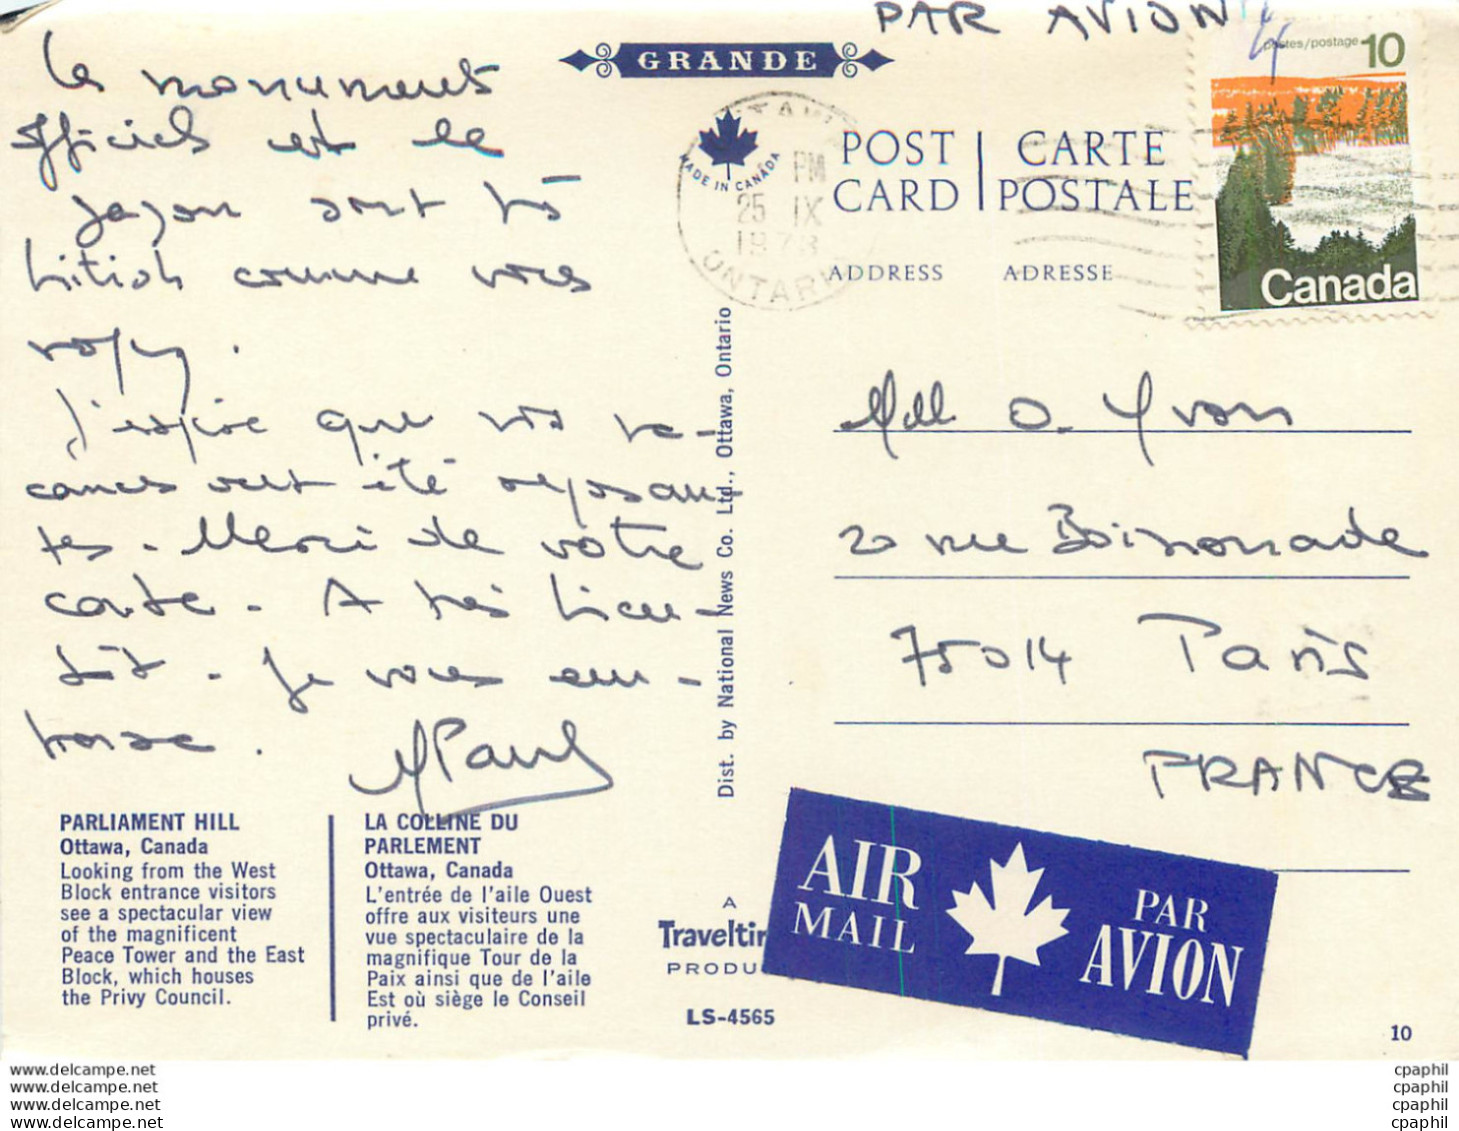 PAR AVION
GRANDE
Les monuments
officiels et le
gazon sont très
british comme vous
voyez.
J'espère que vos va-
cances ont été reposan-
tes. Merci de votre
carte. A très bien-
tôt. Je vous em-
brasse.
MADE IN CANADA
OTTAWA
PM
25 IX
1973
ONTARIO
POST CARD
CARTE POSTALE
ADDRESS ADRESSE
postes/postage 10
Canada
Dist. by National News Co. Ltd., Ottawa, Ontario
Mdlle O. Yvon
20 rue Boissonade
75014 Paris
FRANCE
PARLIAMENT HILL
Ottawa, Canada
Looking from the West
Block entrance visitors
see a spectacular view
of the magnificent
Peace Tower and the East
Block, which houses
the Privy Council.
LA COLLINE DU
PARLEMENT
Ottawa, Canada
L'entrée de l'aile Ouest
offre aux visiteurs une
vue spectaculaire de la
magnifique Tour de la
Paix ainsi que de l'aile
Est où siège le Conseil
privé.
A
Traveltim
PRODU
LS-4565
AIR
MAIL
PAR
AVION
10
www.delcampe.net
www.delcampe.net
www.delcampe.net
www.delcampe.net
cpaphil
cpaphil
cpaphil
cpaphil